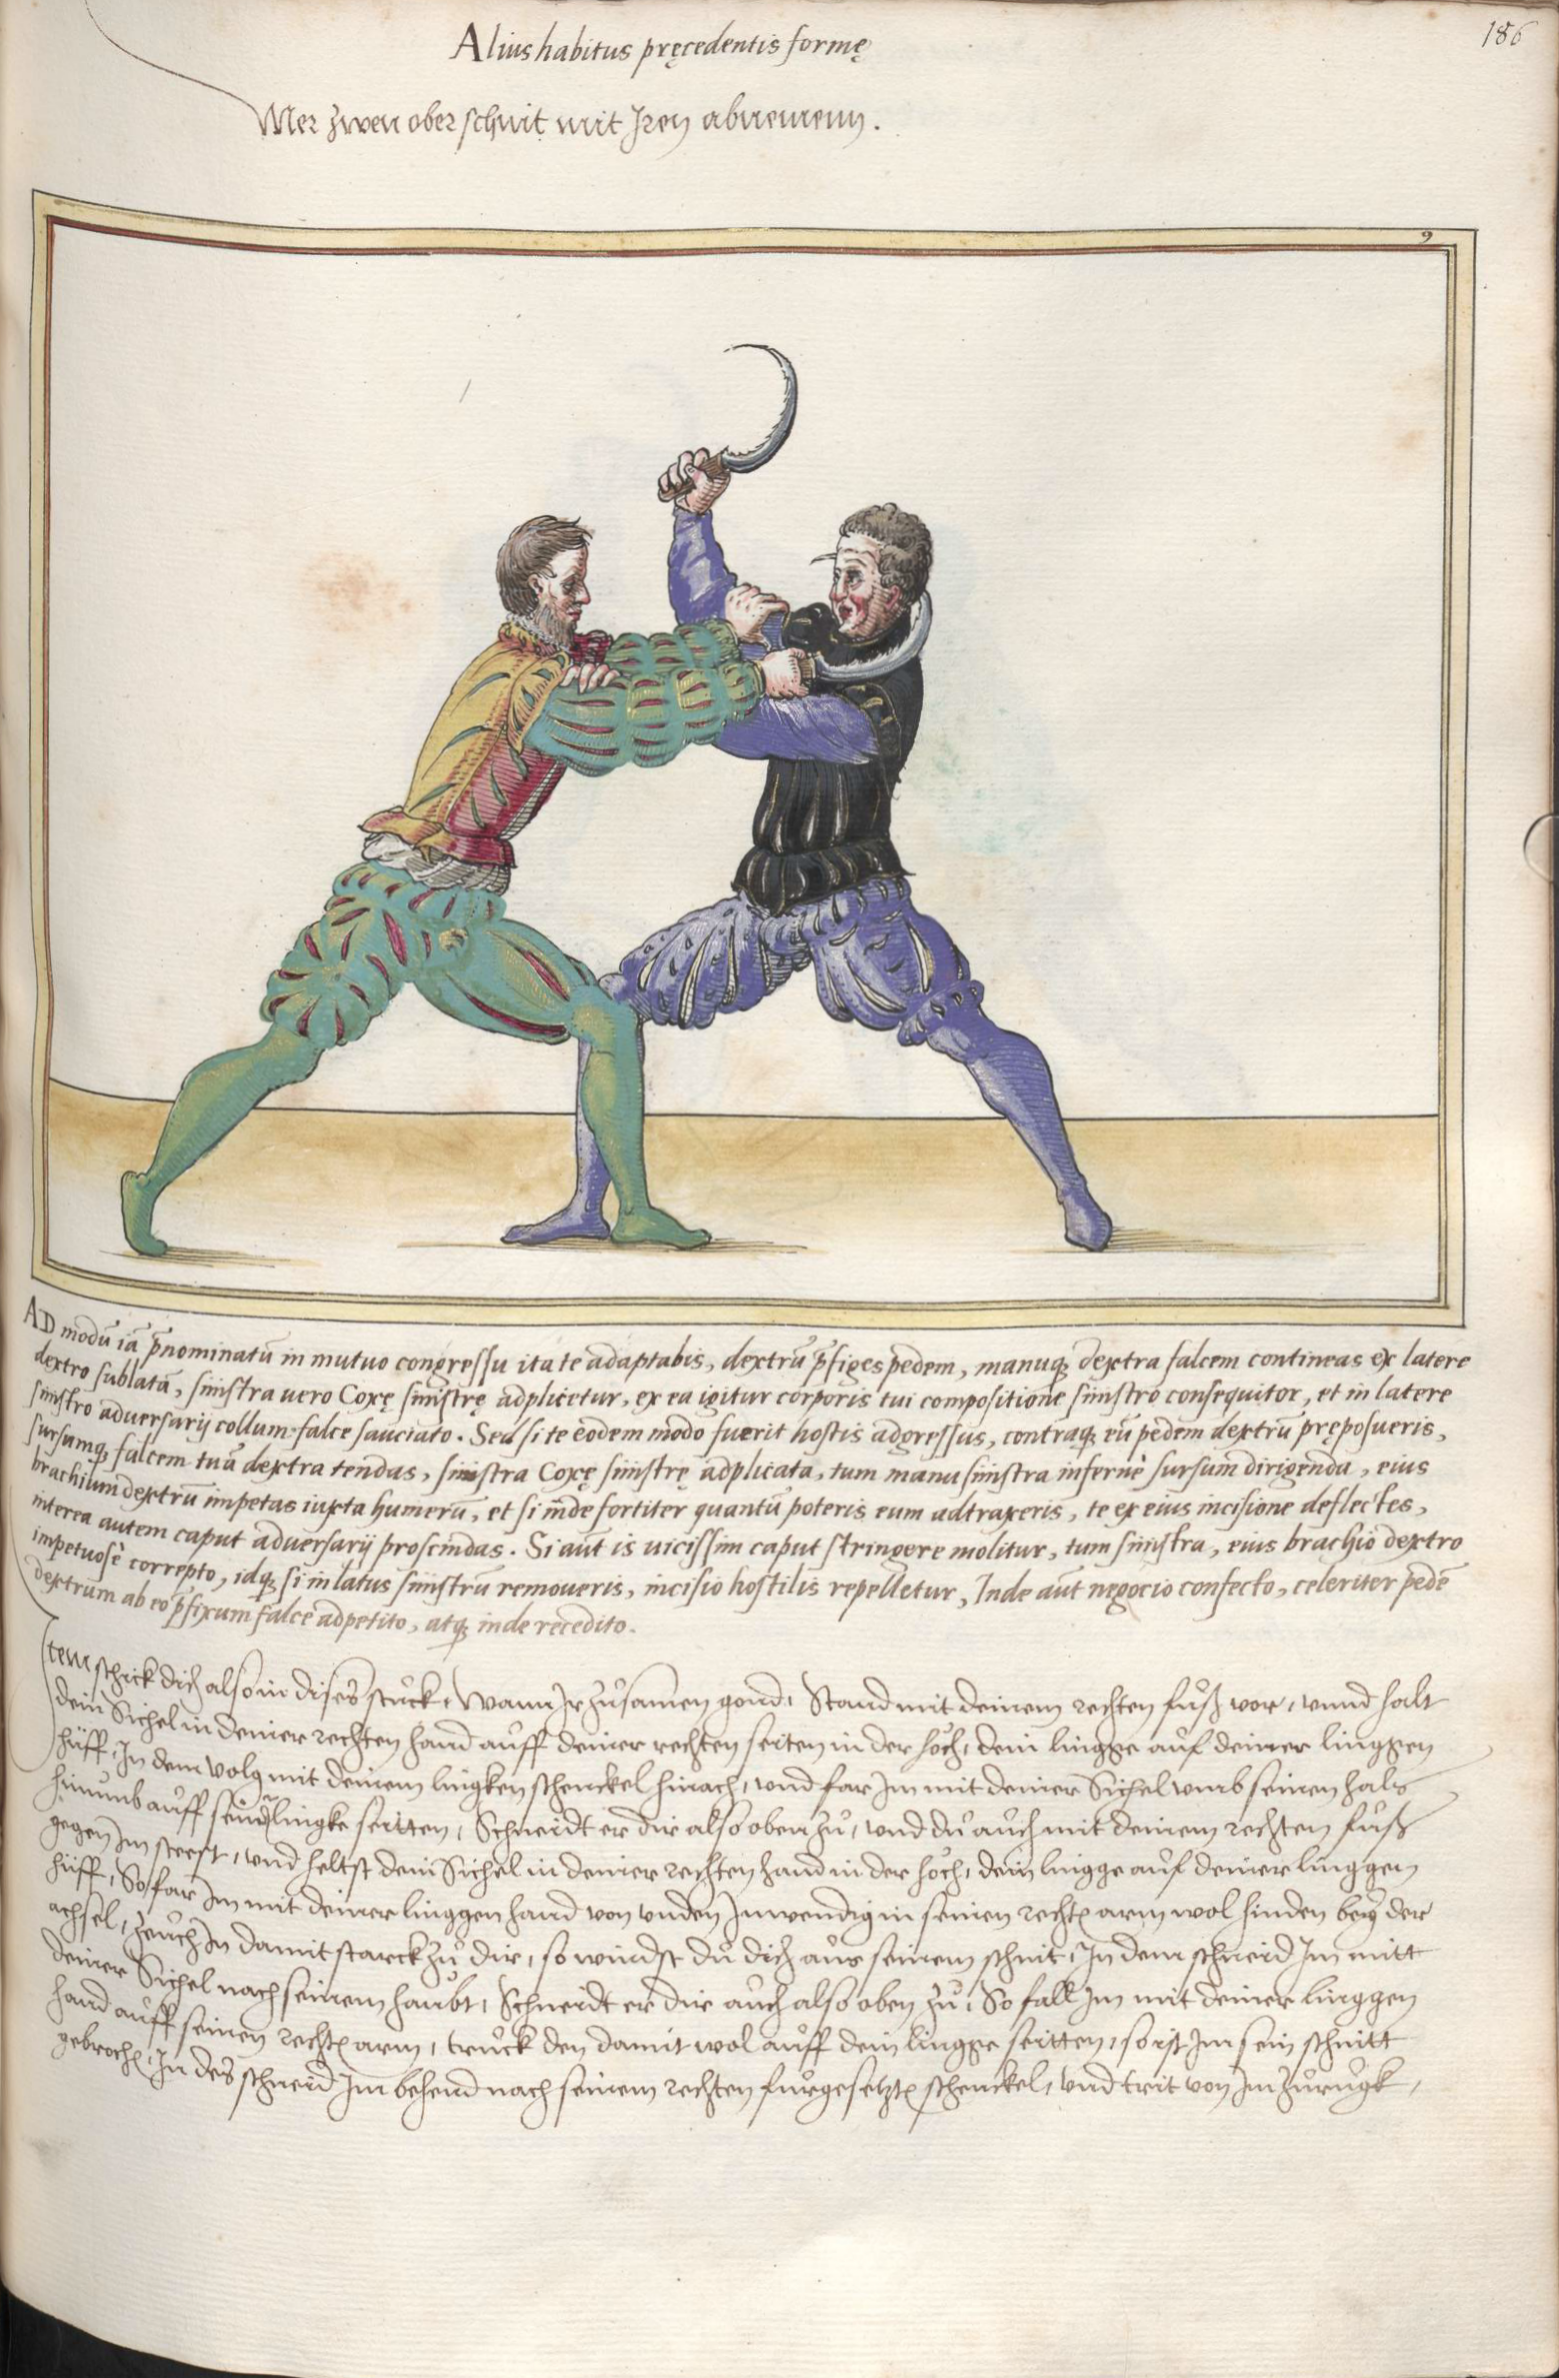 Alius habitus pręcedentis formę
186
Mer zwen ober schnit mit Iren abnemenn.
9
AD modũ iã p̃nominatũ in mutuo congressu ita te adaptabis, dextrũ p̃figes pedem, manuq; dextra falcem contineas ex latere
dextro sublatã, sinistra uero Coxę sinistrę adplicetur, ex ea igitur corporis tui compositione sinistro consequitor, et in latere
sinistro aduersarij collum falce sauciato. Sed si te eodem modo fuerit hostis adgressus, contraq; eũ pedem dextrũ pręposueris,
sursumq; falcem tuã dextra tendas, sinistra Coxę sinistrę adplicata, tum manu sinistra infernè sursum dirigenda, eius
brachium dextrũ impetas iuxta humerũ, et si inde fortiter quantũ poteris eum adtraxeris, te ex eius incisione deflectes,
interea autem caput aduersarij proscindas. Si aũt is uicissim caput stringere molitur, tum sinistra, eius brachio dextro
impetuosè correpto, idq; si in latus sinistrũ remoueris, incisio hostilis repelletur, Inde aũt negocio confecto, celeriter pedẽ
dextrum ab eo p̃fixum falce adpetito, atq; inde recedito.
Item schick dich also in dises stuck, Wann Ir zůsamen gond, Stand mit deinem rechten fůß vor, vnnd halt
dein Sichel in deiner rechten hand auff deiner rechten seiten in der höch, dein lingge auf deiner linggen
hüff, In dem volg mit deinem lingken schenckel hinach, vnd far Im mit deiner Sichel vmb seinen hals
hinumb auff sein lingke seitten, Schneidt er dir also oben zů, vnd du auch mit deinem rechten fůß
gegen Im steest, vnd heltst dein Sichel in deiner rechten hand in der höch, dein lingge auf deiner linggen
hüff, So far Im mit deiner linggen hand von vnden Inwendig in seinen rechtẽ arm wol hinden bey der
achsel, zeuch In damit starck zů dir, so windst du dich aus seinem schnit, In dem schneid Im mitt
deiner Sichel nach seinem haubt, Schneidt er dir auch also oben zů, So fall Im mit deiner linggen
hand auff seinen rechtẽ arm, truck den damit wol auff dein lingge seitten, so ist Im sein schnitt
gebrochẽ, In des schneid Im behend nach seinem rechten fürgesetztẽ schenckel, vnd trit von Im zůrugk,